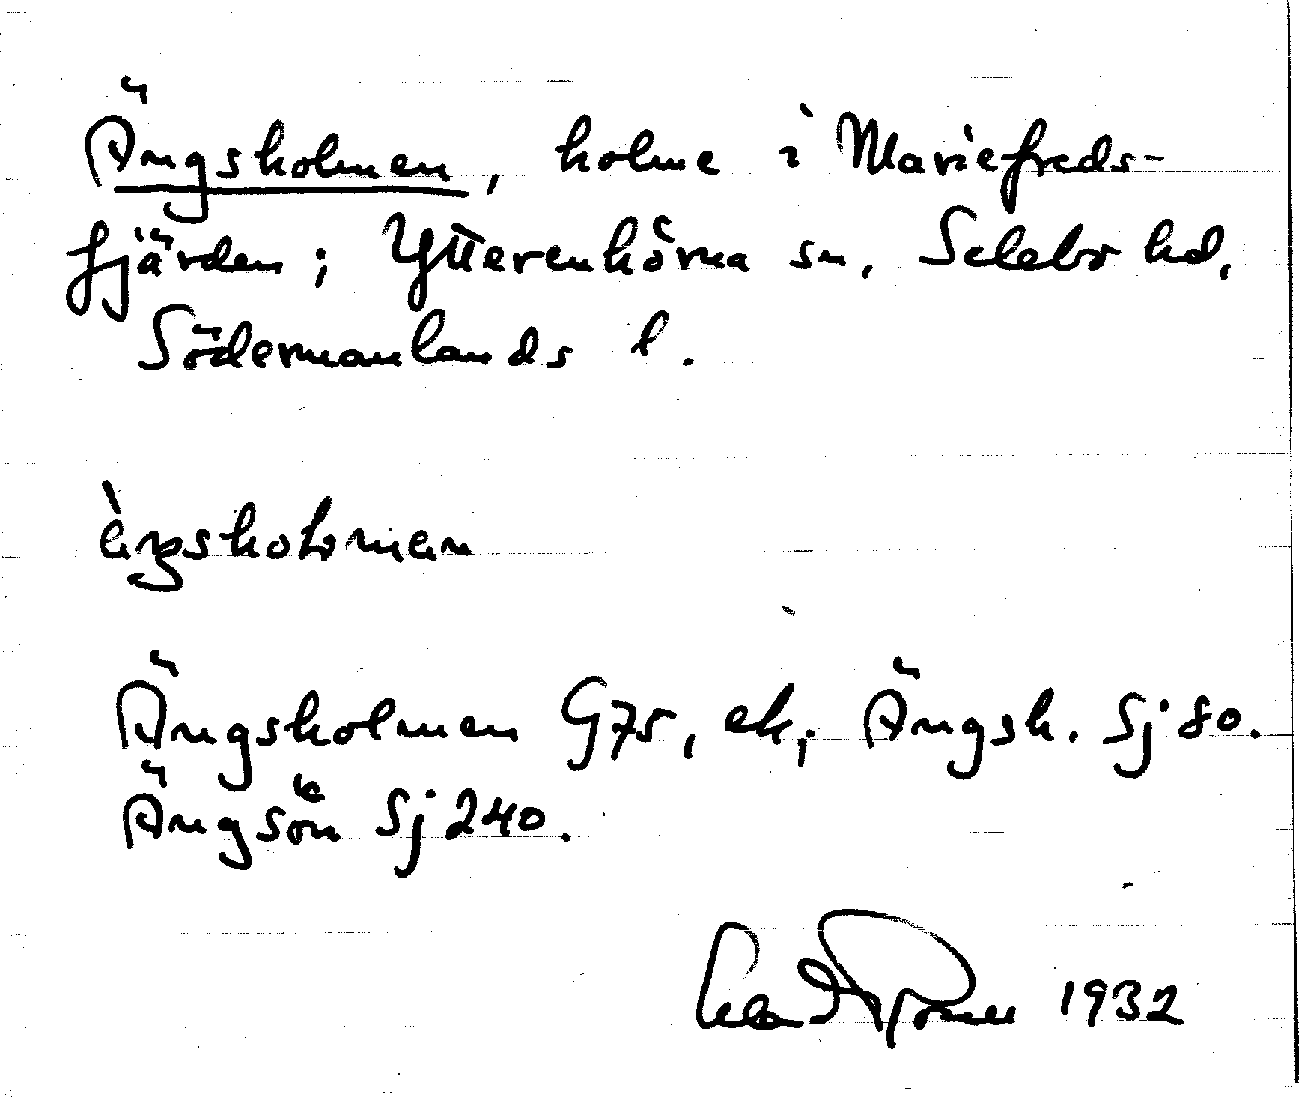 Ängsholmen, holme i Mariefreds-
fjärden; Ytterenhörna sn, Selebo hd,
Södermanlands l.
Ängsholmen G75, ek, Ängsh. Sj 80.
Ängsön Sj 240.
1932